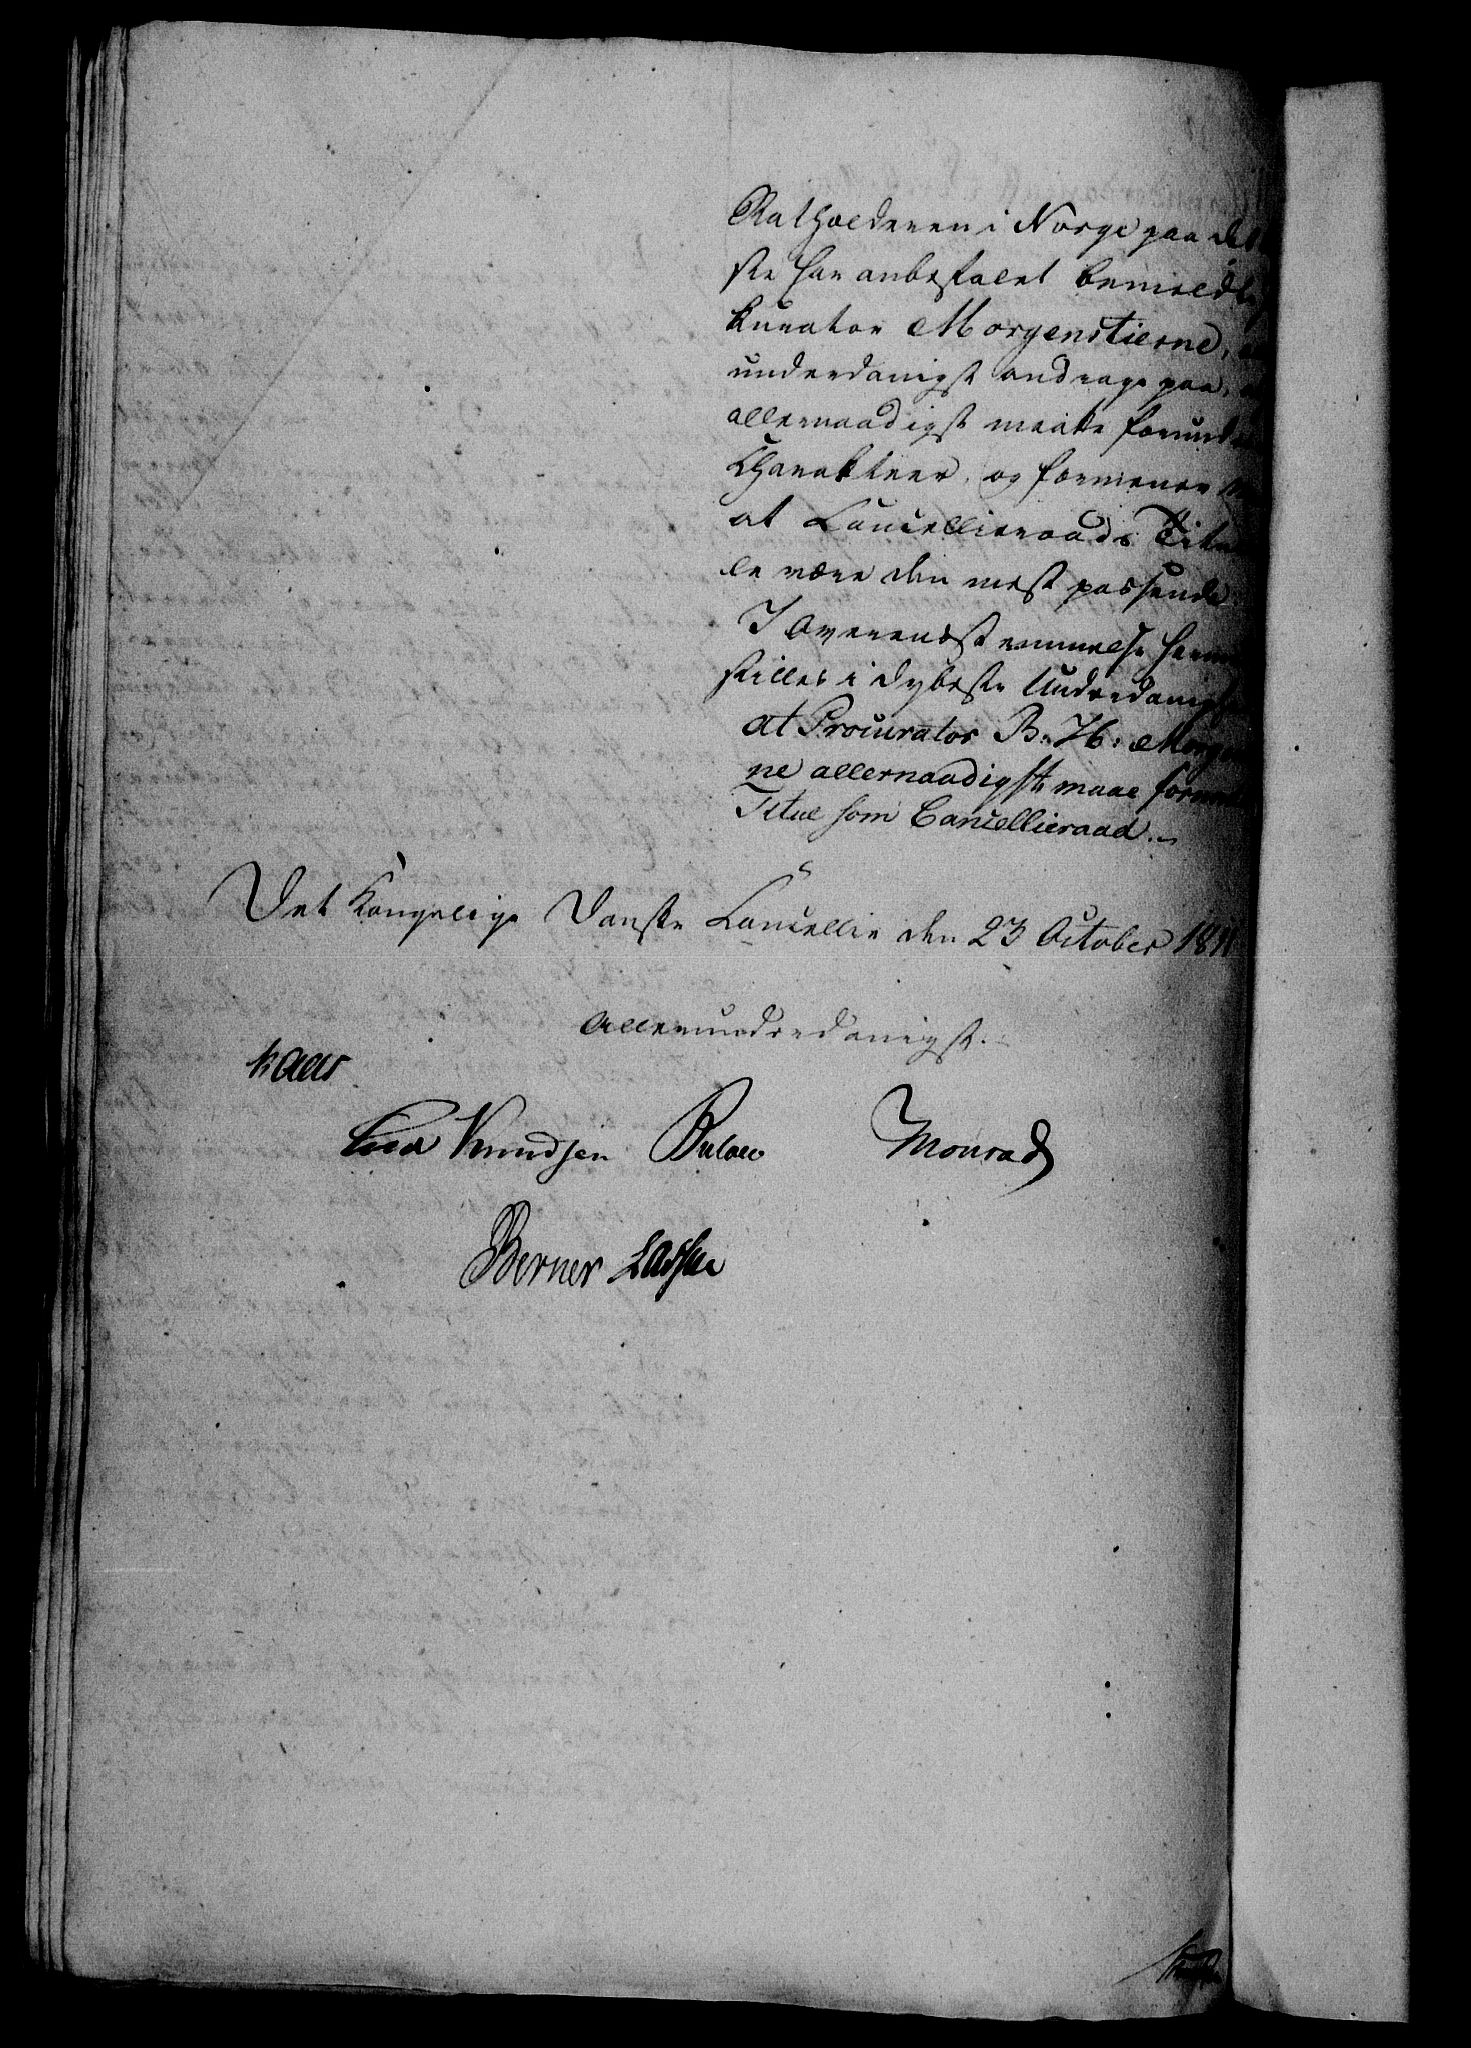 Statholderen i Norge paa det
ste har anbefalet bemeldte
kurator Morgenstierne,
underdanigst andrage paa,
allernaadigst maatte forund
Charakteer, og formener
at Cancellieraads Titu
le være den mest passende.
I Overeensstemmelse her
stilles i dybeste Underdanigh
at Procurator B: H: Morgen
ne allernaadigst maae forund
Titul som Cancellieraad.
Det Kongelige Danske Cancellie den 23 October 1811
Allerunderdanigst.
Kaas
Knudsen Bülow Monrad
Berner Lassen